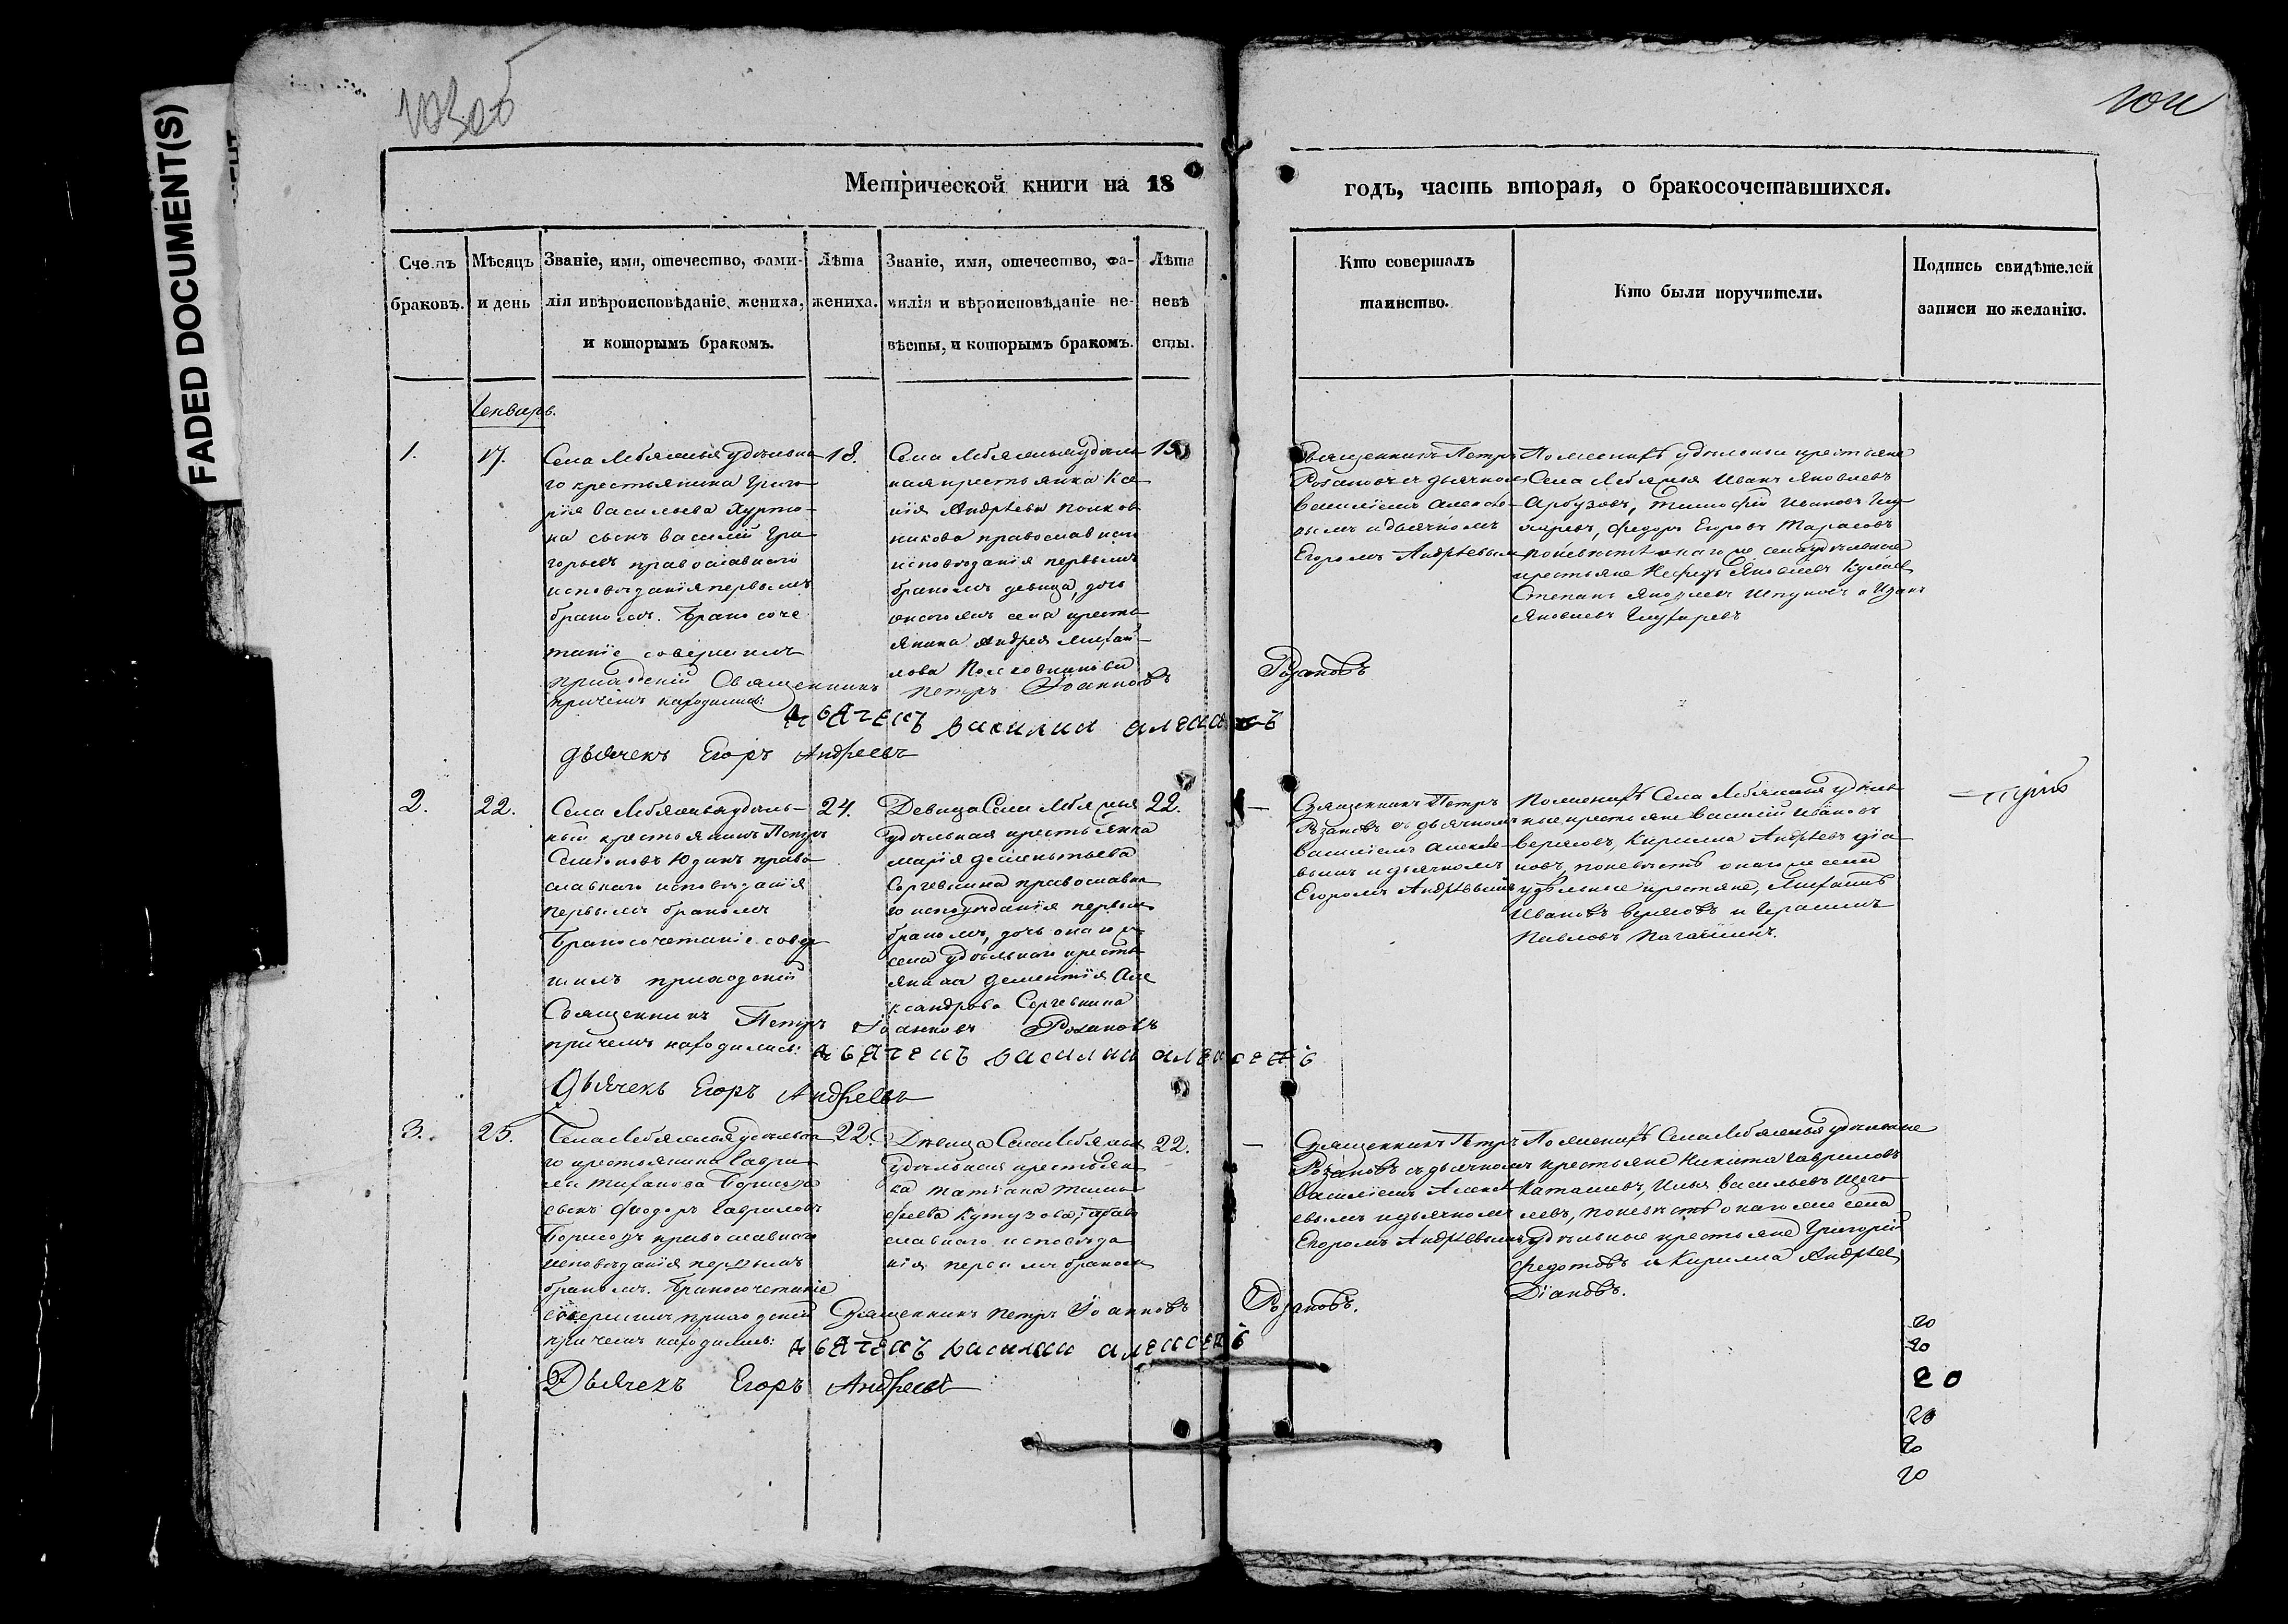 FADED DOCUMENT(S)
103об
104
Метрической книги на 18
годъ, часть вторая, о бракосочетавшихся.
Счетъ браковъ.
Мѣсяцъ и день
Званіе, имя, отечество, фами-
лія и вѣроисповѣданіе жениха,
и которымъ бракомъ.
Лѣта
жениха.
Званіе, имя, отечество, фа-
милія и вѣроисповѣданіе не-
вѣсты, и которымъ бракомъ.
Лѣта
невѣ
сты.
Кто совершалъ
таинство.
Кто были поручители.
Подпись свидѣтелей
записи по желанію.
Генварь.
1.
17.
Села Лебяжья удѣльна
го крестьянина Григо
рія Васильева
на сынъ Василій Гри
горьевъ православнаго
исповѣданія первымъ
бракомъ. Бракосоче
таніе совершилъ
приходскій Священникъ Петръ Іоанновъ Розановъ
причемъ находились:
дьячекъ василии алексѣевъ
дьячекъ Егоръ Андреевъ
18.
Села Лебяжья удѣль
ная крестьянка Ксе
нія Андрѣева Полков
никова православнаго
исповѣданія первымъ
бракомъ девица, дочь
онаго же села кресть
янина Андрея Михай
лова Полковникова
19
Священникъ Петръ
Розановъ съ дьячкомъ
Василіемъ Алексѣе
вымъ и дьячкомъ
Егоромъ Андрѣевымъ
По женихѣ удѣльные крестьяне
Села Лебяжья Иванъ Яковлевъ
Арбузовъ, Тимофѣй Ивановъ
Федоръ Егоровъ Тарасовъ
по невѣстѣ онаго же села удѣльные
крестьяне Яковлевъ
Степанъ Яковлевъ и Иванъ
Яковлевъ
2.
22.
Села Лебяжья удѣль-
ный крестьянинъ Петръ
Симіоновъ Юдинъ право
славнаго исповѣданія
первымъ бракомъ
Бракосочетаніе совер
шилъ приходскій
Священникъ Петръ Іоанновъ Розановъ
причемъ находились: дьячекъ василии алексеевъ
Дьячекъ Егоръ Андреевъ
24.
Девица Села Лебяжья
удѣльная крестьянка
Марія Дементьева
Сергевнина православна
го исповѣданія первым
бракомъ, дочь онаго же
села удѣльнаго кресть
янина Дементія Але
ксандрова Сергевнина
22.
Священникъ Петръ
Розановъ съ дьячкомъ
Василіемъ Алексѣе
вымъ и дьячкомъ
Егоромъ Андрѣевымъ
По женихѣ Села Лебяжья удѣль
ные крестьяне Василій Ивановъ
Кирилла Андрѣевъ Діа
новъ, по невѣстѣ онаго же села
удѣльные крестьяне, Михаилъ
Ивановъ и Герасимъ
Павловъ
3.
25.
Села Лебяжья удѣльна
го крестьянина Гаври
ла Борисова
сынъ Феодоръ Гавриловъ
Борисовъ православнаго
исповѣданія первымъ
бракомъ. Бракосочетаніе
совершилъ приходскій Священникъ Петръ Іоанновъ Розановъ.
причемъ находились: дьячекъ василии алексеевъ
Дьячекъ Егоръ Андреевъ
22.
Дѣвица Села Лебяжья
удѣльная крестьян
ка Татіана Тимо
фѣева Кутузова, право
славнаго исповѣда
нія первымъ бракомъ
22.
Священникъ Петръ
Розановъ съ дьячкомъ
Василіемъ Алексѣ
евымъ и дьячкомъ
Егоромъ Андрѣевымъ
По женихѣ Села Лебяжья удѣльные
крестьяне Никита Гавриловъ
Илья Васильевъ Щего
левъ, по невѣстѣ онаго же села
удѣльные крестьяне Григорій
Федотовъ и Кирилла Андрѣев
Діановъ.
20
20
20
20
20
20